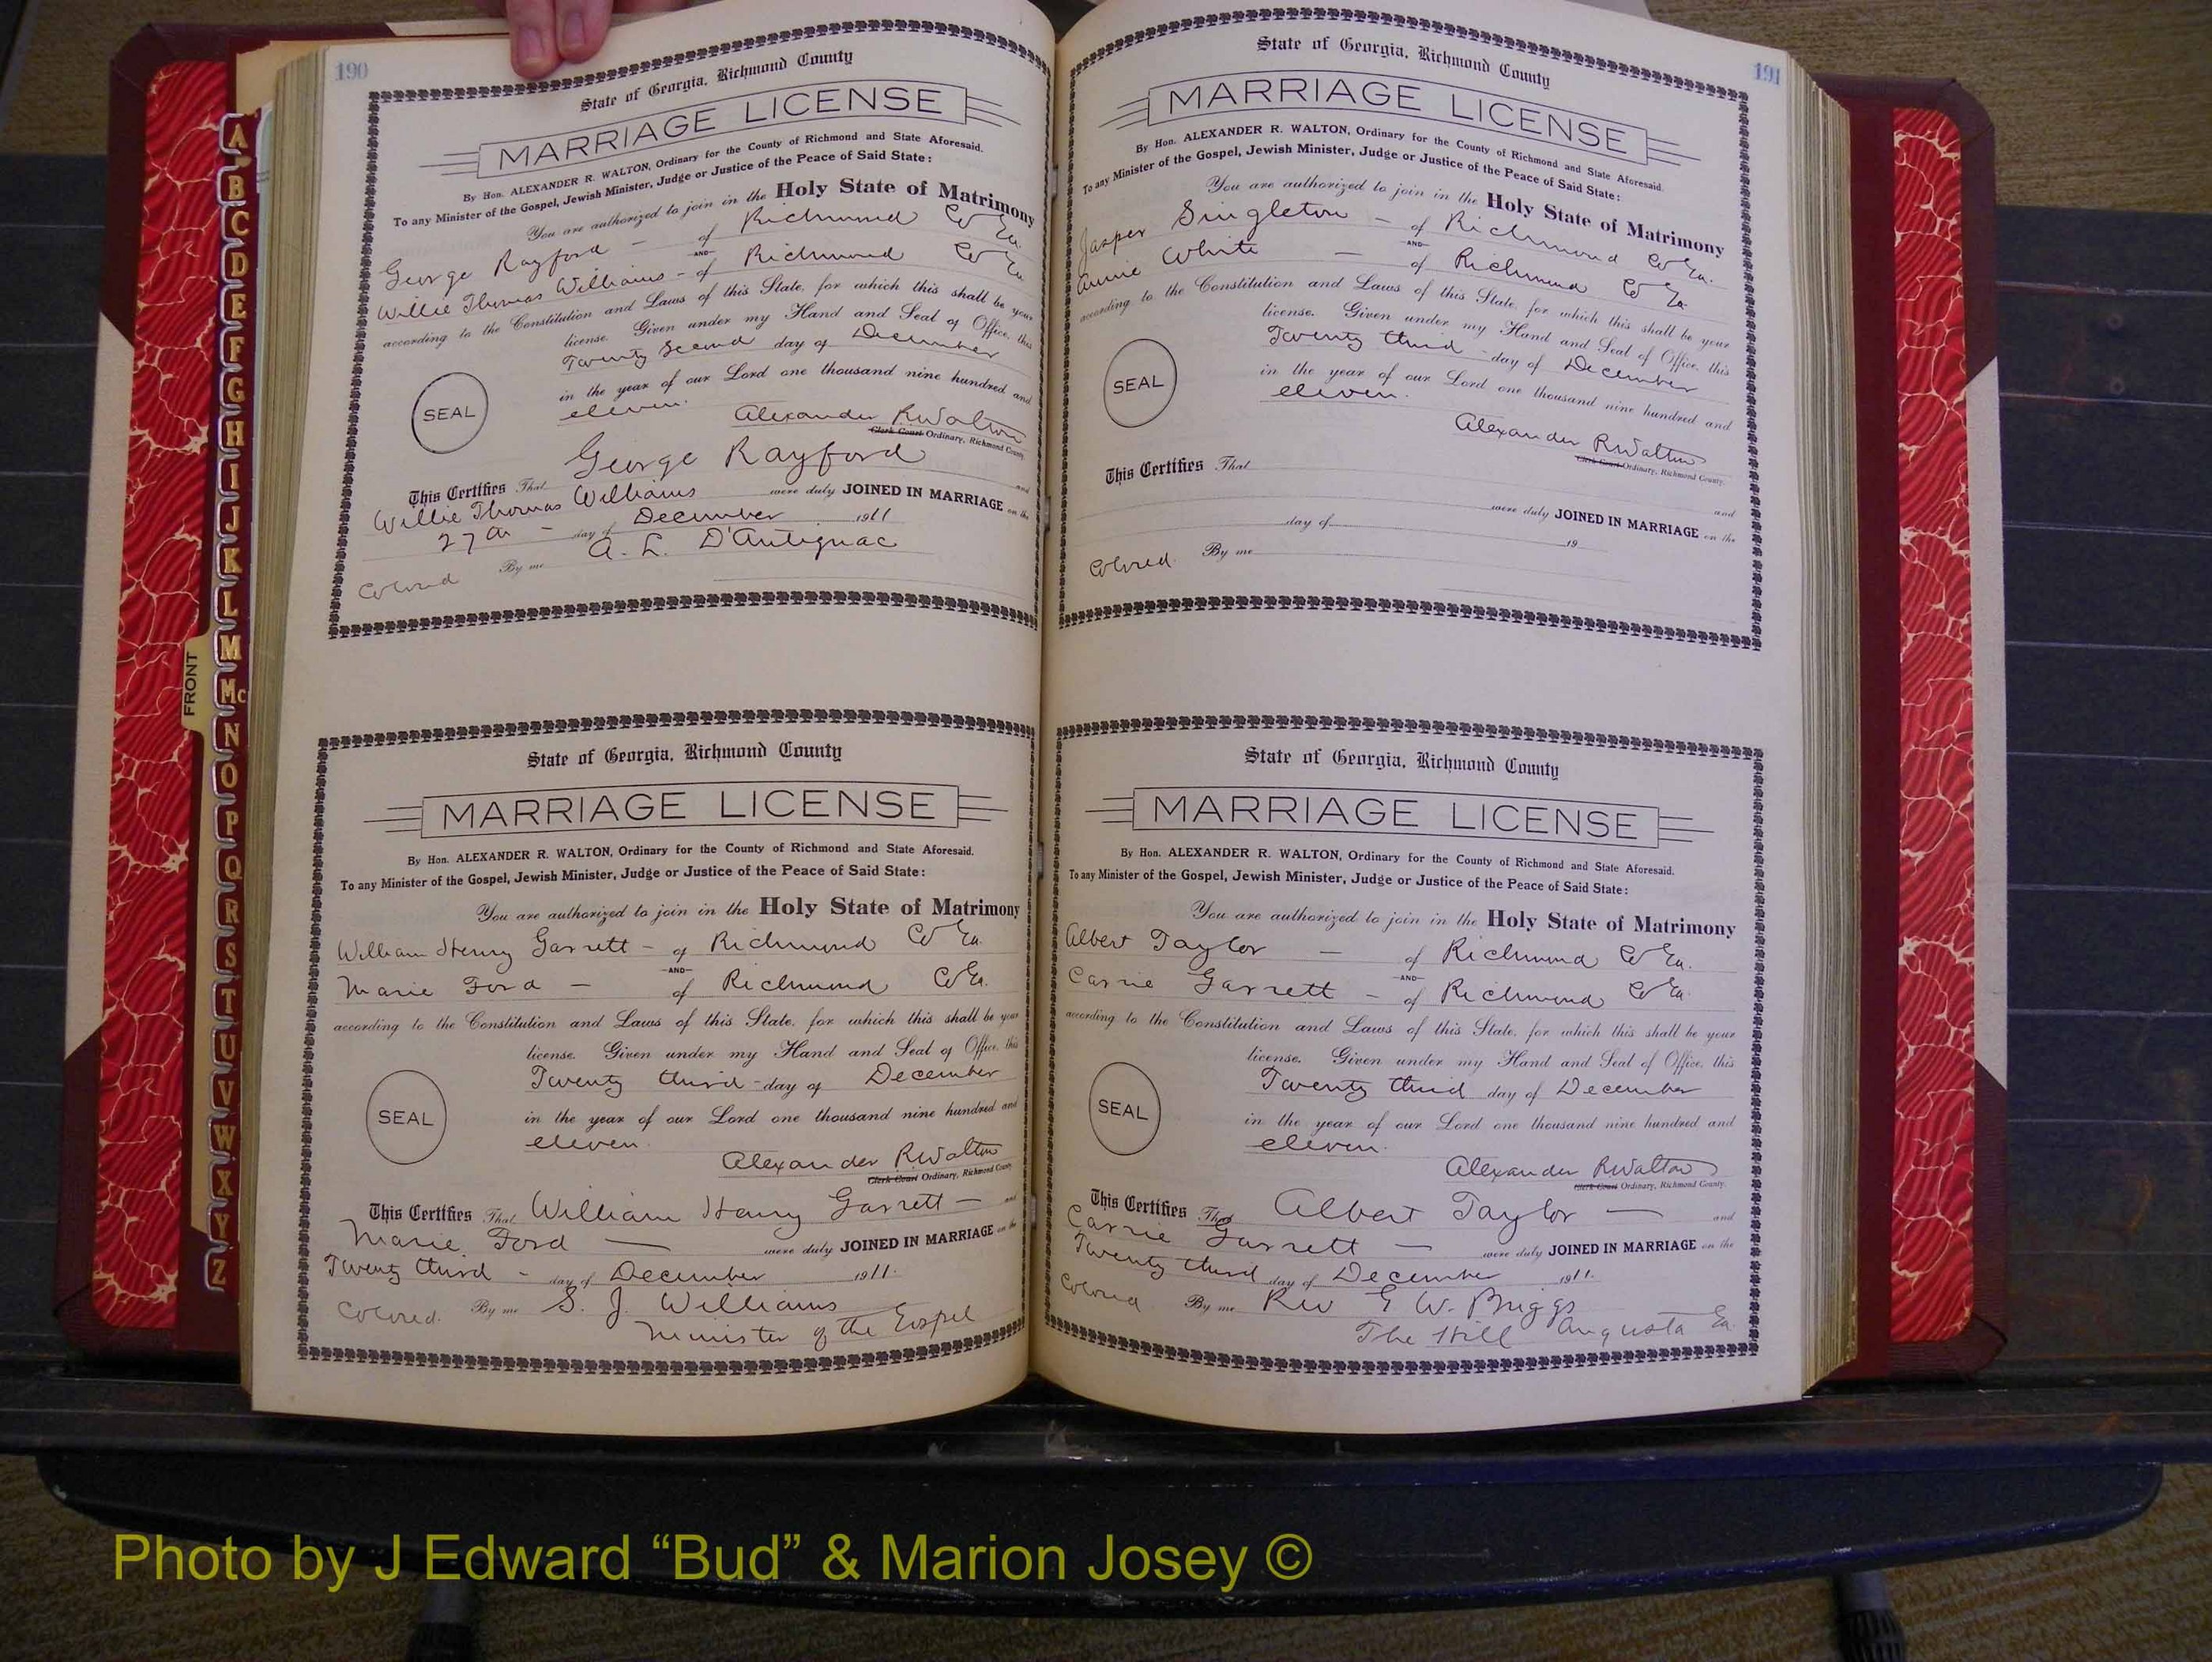 190
State of Georgia, Richmond County
MARRIAGE LICENSE
By Hon. ALEXANDER R. WALTON, Ordinary for the County of Richmond and State Aforesaid.
To any Minister of the Gospel, Jewish Minister, Judge or Justice of the Peace of Said State:
You are authorized to join in the Holy State of Matrimony
George Rayford — of Richmond Co Ga.
AND
Willie Thomas Williams - of Richmond Co Ga
according to the Constitution and Laws of this State, for which this shall be your
license. Given under my Hand and Seal of Office, this
Twenty Second day of December
in the year of our Lord one thousand nine hundred and
eleven.
SEAL
Alexander R Walton
Clerk Court Ordinary, Richmond County.
This Certifies That George Rayford and
Willie Thomas Williams were duly JOINED IN MARRIAGE on the
27th - day of December 1911
By me A. L. D'Antignac
Colored
State of Georgia, Richmond County
MARRIAGE LICENSE
By Hon. ALEXANDER R. WALTON, Ordinary for the County of Richmond and State Aforesaid.
To any Minister of the Gospel, Jewish Minister, Judge or Justice of the Peace of Said State:
You are authorized to join in the Holy State of Matrimony
William Henry Garrett - of Richmond Co Ga.
AND
Marie Ford — of Richmond Co Ga.
according to the Constitution and Laws of this State, for which this shall be your
license. Given under my Hand and Seal of Office, this
Twenty third - day of December
in the year of our Lord one thousand nine hundred and
eleven.
SEAL
Alexander R Walton
Clerk Court Ordinary, Richmond County
This Certifies That William Henry Garrett — and
Marie Ford — were duly JOINED IN MARRIAGE on the
Twenty third - day of December 1911.
Colored. By me S. J. Williams
Minister of the Gospel
191
State of Georgia, Richmond County
MARRIAGE LICENSE
By Hon. ALEXANDER R. WALTON, Ordinary for the County of Richmond and State Aforesaid.
To any Minister of the Gospel, Jewish Minister, Judge or Justice of the Peace of Said State:
You are authorized to join in the Holy State of Matrimony
Jasper Singleton - of Richmond Co Ga.
AND
Annie White — of Richmond Co Ga
according to the Constitution and Laws of this State, for which this shall be your
license. Given under my Hand and Seal of Office, this
Twenty third - day of December
in the year of our Lord one thousand nine hundred and
eleven.
SEAL
Alexander R Walton
Clerk Court Ordinary, Richmond County.
This Certifies That and
were duly JOINED IN MARRIAGE on the
day of 19
Colored. By me
State of Georgia, Richmond County
MARRIAGE LICENSE
By Hon. ALEXANDER R. WALTON, Ordinary for the County of Richmond and State Aforesaid.
To any Minister of the Gospel, Jewish Minister, Judge or Justice of the Peace of Said State:
You are authorized to join in the Holy State of Matrimony
Albert Taylor — of Richmond Co Ga.
AND
Carrie Garrett - of Richmond Co Ga.
according to the Constitution and Laws of this State, for which this shall be your
license. Given under my Hand and Seal of Office, this
Twenty third day of December
in the year of our Lord one thousand nine hundred and
eleven.
SEAL
Alexander R Walton
Clerk Court Ordinary, Richmond County.
This Certifies That Albert Taylor — and
Carrie Garrett — were duly JOINED IN MARRIAGE on the
Twenty third day of December 1911.
Colored By me Rev G W. Briggs
The Hill Augusta Ga.
A
B
C
D
E
F
G
H
I
J
K
L
M
Mc
N
O
P
Q
R
S
T
U
V
W
X
Y
Z
FRONT
Photo by J Edward “Bud” & Marion Josey ©